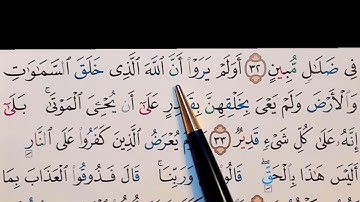 فِى ضَلَـٰلٍ مُّبِينٍ ٣٢ أَوَلَمْ يَرَوْا۟ أَنَّ ٱللَّهَ ٱلَّذِى خَلَقَ ٱلسَّمَـٰوَٰتِ
وَٱلْأَرْضَ وَلَمْ يَعْىَ بِخَلْقِهِنَّ بِقَـٰدِرٍ عَلَىٰٓ أَن يُحْـِۧىَ ٱلْمَوْتَىٰ ۚ بَلَىٰٓ
إِنَّهُۥ عَلَىٰ كُلِّ شَىْءٍ قَدِيرٌ ٣٣ يُعْرَضُ ٱلَّذِينَ كَفَرُوا۟ عَلَى ٱلنَّارِ
أَلَيْسَ هَـٰذَا بِٱلْحَقِّ ۖ قَالُوا۟ وَرَبِّنَا ۚ قَالَ فَذُوقُوا۟ ٱلْعَذَابَ بِمَا